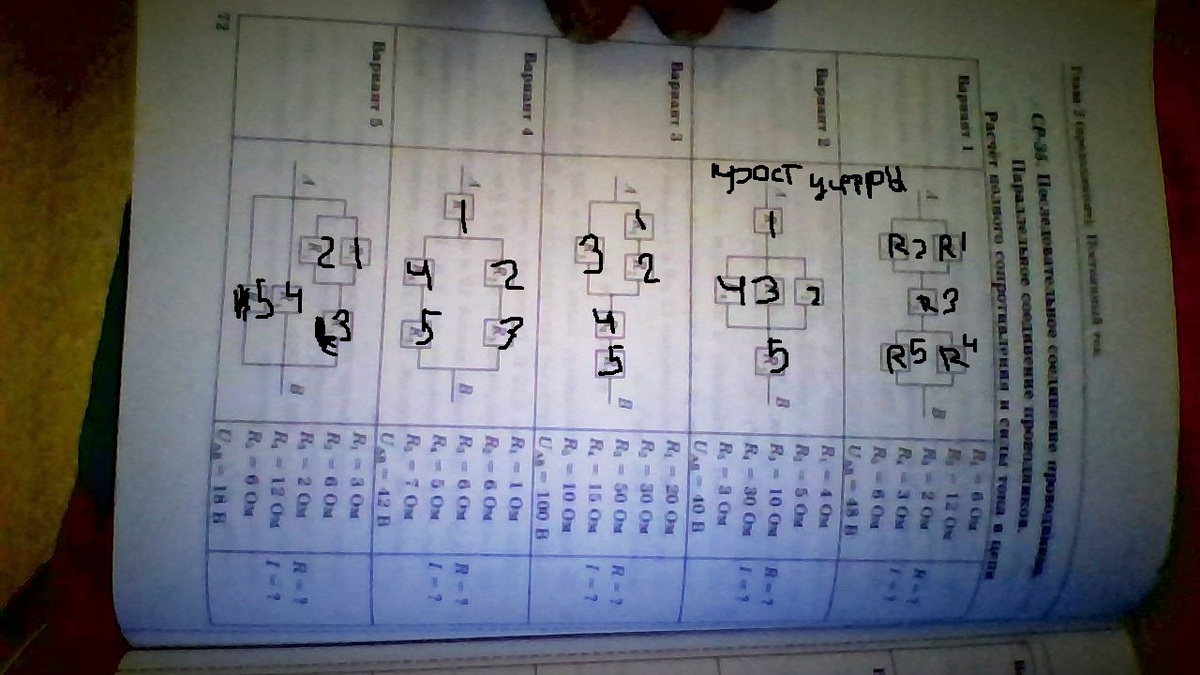 Глава 2 (продолжение). Постоянный ток
СР-35. Последовательное соединение проводников.
Параллельное соединение проводников.
Расчёт полного сопротивления и силы тока в цепи
Вариант 1
A
R2 R1
R3
R5 R4
B
R₁ = 6 Ом
R₂ = 12 Ом
R₃ = 2 Ом
R₄ = 3 Ом
R₅ = 6 Ом
U_AB = 48 В
R = ?
I = ?
Вариант 2
прост цифры
A
1
4 3 2
5
B
R₁ = 4 Ом
R₂ = 5 Ом
R₃ = 10 Ом
R₄ = 30 Ом
R₅ = 3 Ом
U_AB = 40 В
R = ?
I = ?
Вариант 3
A
1
3 2
4
5
B
R₁ = 20 Ом
R₂ = 30 Ом
R₃ = 50 Ом
R₄ = 15 Ом
R₅ = 10 Ом
U_AB = 100 В
R = ?
I = ?
Вариант 4
A
1
4 2
5 3
B
R₁ = 1 Ом
R₂ = 6 Ом
R₃ = 6 Ом
R₄ = 5 Ом
R₅ = 7 Ом
U_AB = 42 В
R = ?
I = ?
Вариант 5
A
2 1
5 4 3
B
R₁ = 3 Ом
R₂ = 6 Ом
R₃ = 2 Ом
R₄ = 12 Ом
R₅ = 6 Ом
U_AB = 18 В
R = ?
I = ?
72